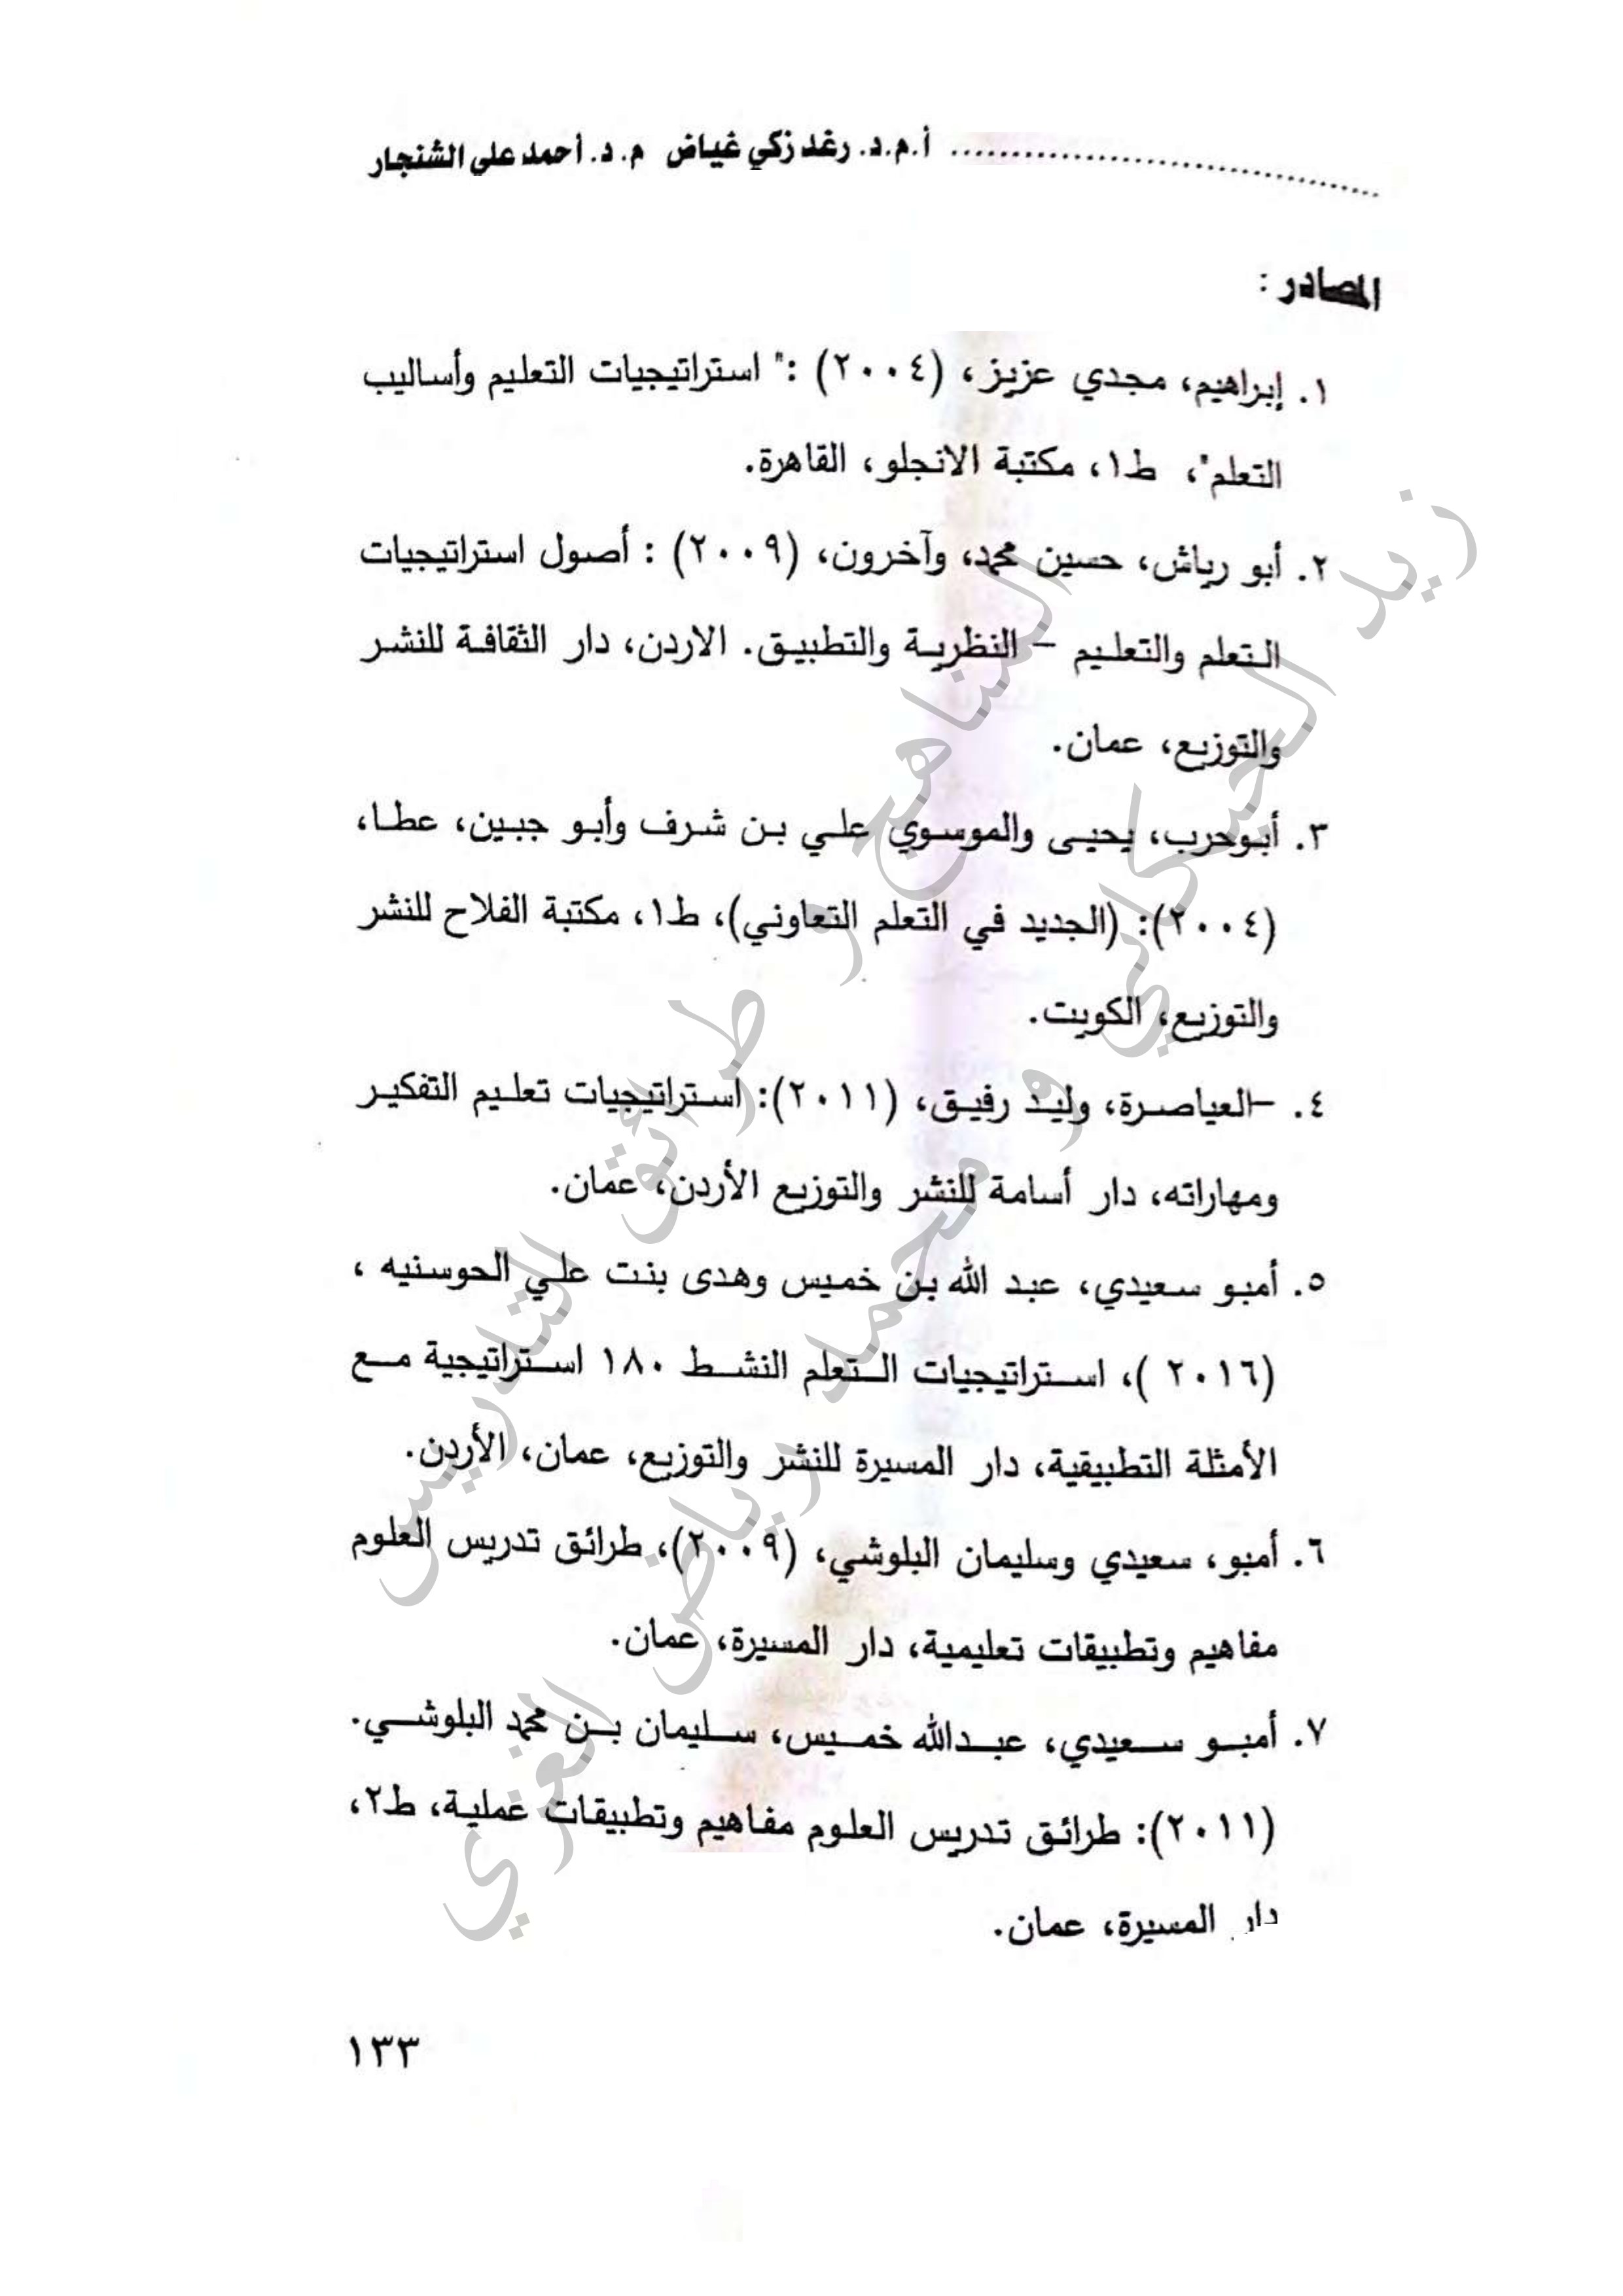 أ.م.د. رغد زكي غياض م. د. أحمد علي الشنجار
المصادر :
١. إبراهيم، مجدي عزيز، (٢٠٠٤) :" استراتيجيات التعليم وأساليب
التعلم"، ط١، مكتبة الانجلو، القاهرة.
٢. أبو رياش، حسين محمد، وآخرون، (٢٠٠٩) : أصول استراتيجيات
التعلم والتعليم – النظرية والتطبيق. الاردن، دار الثقافة للنشر
والتوزيع، عمان.
٣. أبوحرب، يحيى والموسوي علي بن شرف وأبو جبين، عطا،
(٢٠٠٤): (الجديد في التعلم التعاوني)، ط١، مكتبة الفلاح للنشر
والتوزيع، الكويت.
٤. –العياصرة، وليد رفيق، (٢٠١١): استراتيجيات تعليم التفكير
ومهاراته، دار أسامة للنشر والتوزيع الأردن، عمان.
٥. أمبو سعيدي، عبد الله بن خميس وهدى بنت علي الحوسنيه ،
(٢٠١٦ )، استراتيجيات التعلم النشط ١٨٠ استراتيجية مع
الأمثلة التطبيقية، دار المسيرة للنشر والتوزيع، عمان، الأردن.
٦. أمبو، سعيدي وسليمان البلوشي، (٢٠٠٩)، طرائق تدريس العلوم
مفاهيم وتطبيقات تعليمية، دار المسيرة، عمان.
٧. أمبو سعيدي، عبدالله خميس، سليمان بن محمد البلوشي.
(٢٠١١): طرائق تدريس العلوم مفاهيم وتطبيقات عملية، ط٢،
دار المسيرة، عمان.
١٣٣
المناهج و طرائق التدريس
زيد الحسكاني و محمد رياض الغزي